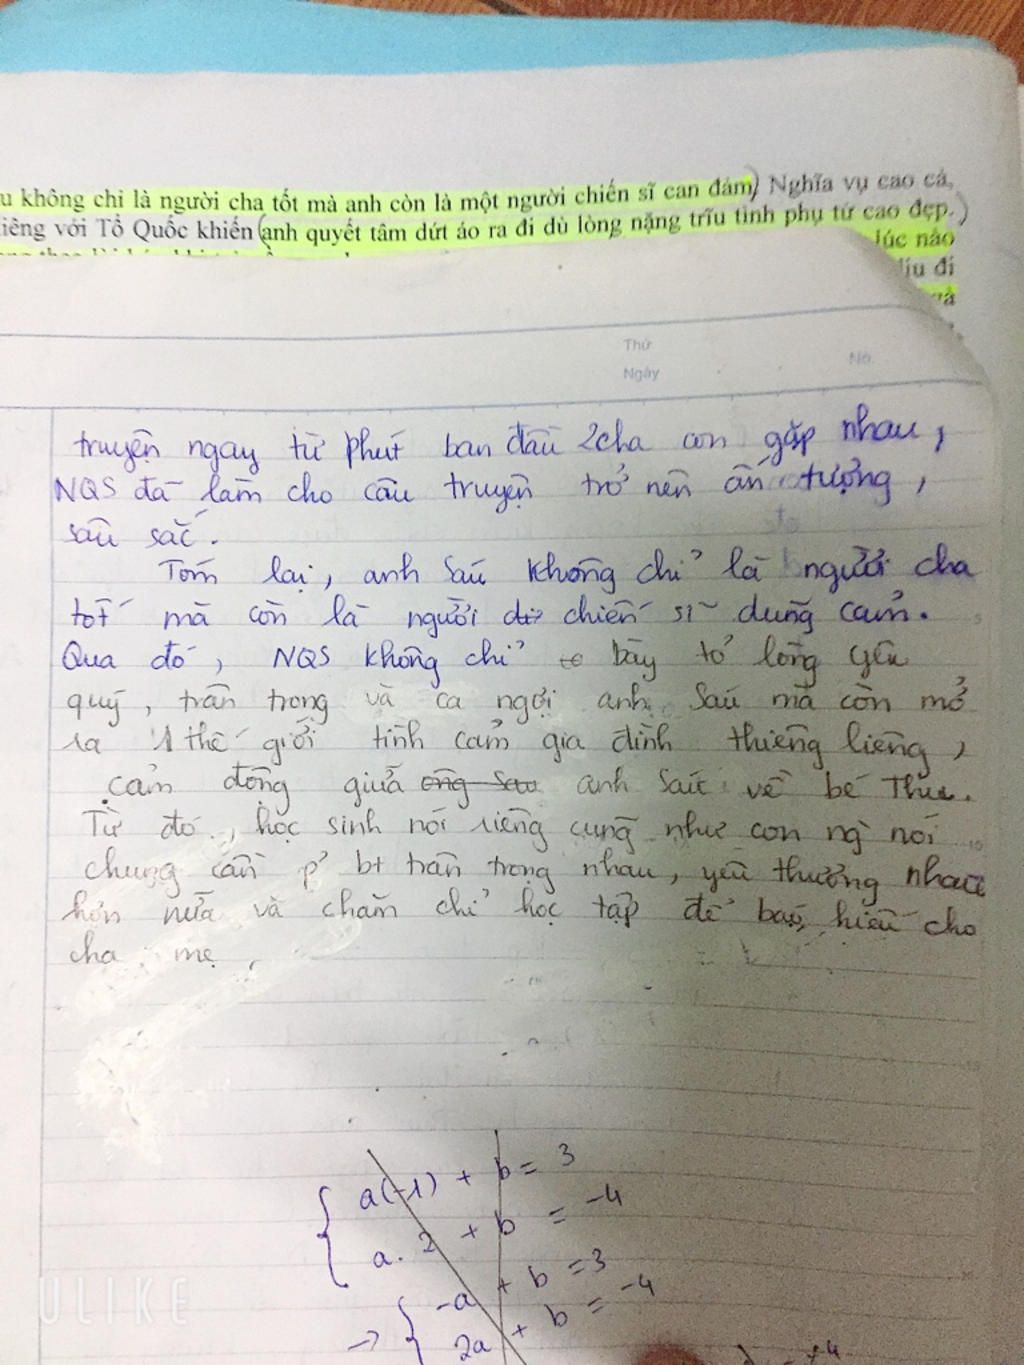 u không chỉ là người cha tốt mà anh còn là một người chiến sĩ can đảm) Nghĩa vụ cao cả,
iêng với Tổ Quốc khiến (anh quyết tâm dứt áo ra đi dù lòng nặng trĩu tình phụ tử cao đẹp.)
lúc nào
đi
Thứ
Ngày
No.
truyện ngay từ phút ban đầu 2 cha con gặp nhau,
NQS đã làm cho câu truyện trở nên ấn tượng,
sâu sắc.
Tóm lại, anh Sáu không chỉ là người cha
tốt mà còn là người chiến sĩ dũng cảm.
Qua đó, NQS không chỉ bày tỏ lòng yêu
quý, trân trọng và ca ngợi anh Sáu mà còn mở
ra 1 thế giới tình cảm gia đình thiêng liêng,
cảm động giữa ông Sáu anh Sáu về bé Thu.
Từ đó, học sinh nói riêng cũng như con ng` nói
chung cần p' bt trân trọng nhau, yêu thương nhau
hơn nữa và chăm chỉ học tập để báo hiếu cho
cha mẹ,
a(-1) + b = 3
a.2 + b = -4
→ -a + b = 3
2a + b = -4
ULIKE